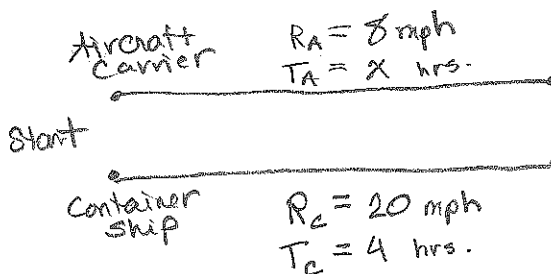 Aircraft
Carrier
R_A = 8 mph
T_A = x hrs.
Start
Container
ship
R_C = 20 mph
T_C = 4 hrs.